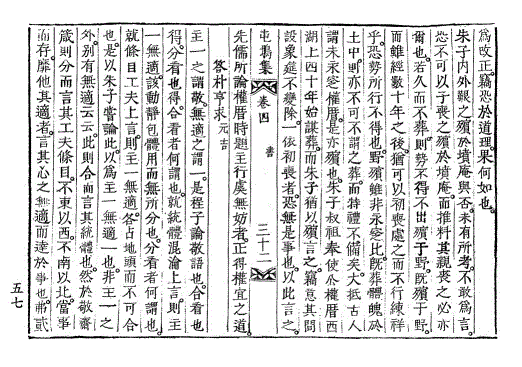 爲改正竊恐於道理果何如也
朱子內外艱之殯於墳庵與否未有所考不敢爲言
恐不可以子喪之殯於墳庵而推料其親喪之必亦
爾也若久而不葬則勢不得不出殯于野旣殯于野
而雖經數十年之後猶可以初喪處之而不行練祥
乎恐勢所行不得也野殯雖非永窆比旣葬體魄於
土中則亦不可不謂之葬而特禮不備矣大抵古人
謂未永窆權厝是亦殯也朱子叔祖奉使公權厝西
湖上四十年始謀葬而朱子猶以殯言之竊意其間
設象筵不變除一依初喪者恐無是事也以此言之
屯塢集
卷四
書
三十二
先儒所論權厝時題主行虞無妨者正得權宜之道
答朴亨求元吉
主一之謂敬無適之謂一是程子論敬語也合看也
得分看也得合看者何謂也就統體混淪上言則主
一無適該動靜包體用而無所分也分看者何謂也
就條目工夫上言則主一無適各占地頭而不可合
也是以朱子嘗論此以爲主一無適一也非主一之
外別有無適云云此則合而言其統體也然於敬齋
箴則分而言其工夫條目不東以西不南以北當事
而存靡他其適者言其心之無適而達於事也弗貳
五七